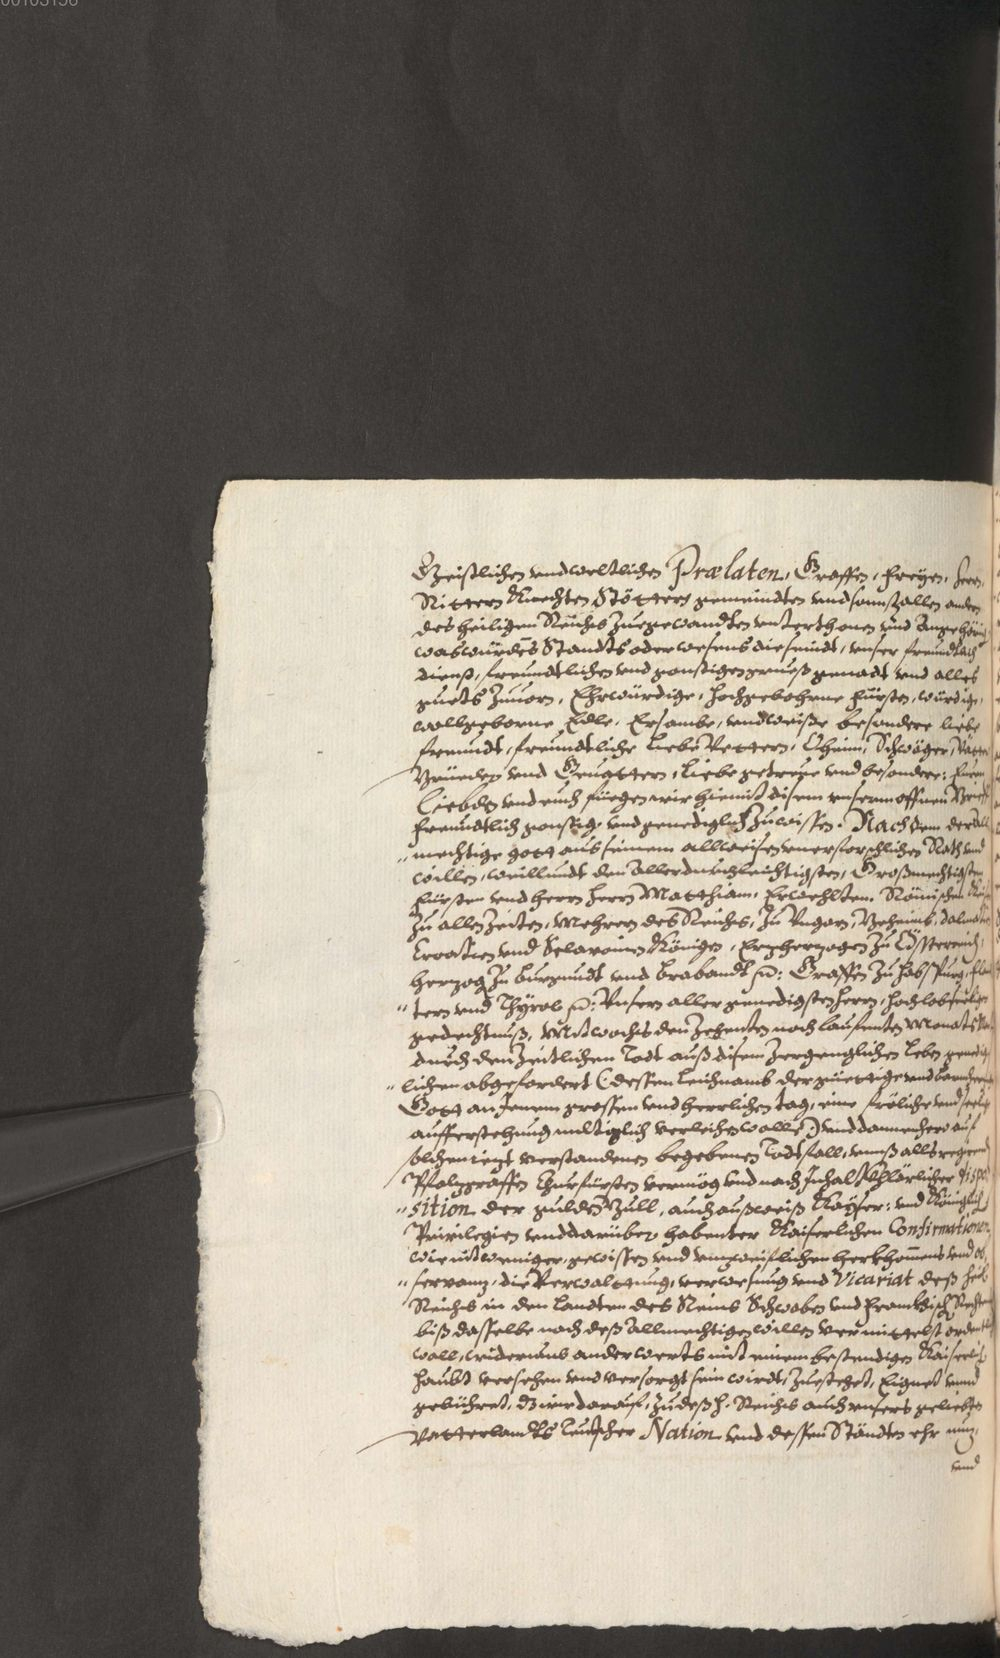 Geistlichen und weltlichen Prælaten, Graffen, Freyen, Herrn,
Rittern Knechten Stötten gemeindten und sonst allen andern
des heiligen Reichs Zuegewandten unterthonen und Angehörig
was würdes Standts oder wesens die seindt, unser freundtlich
dienst, freundtlichen und gonstigen grueß genadt und alles
guets Zuuorn, Ehrwürdige, Hochgebohrne Fürsten, würdige,
wollgeborne Edle, Ersambe, und weiße besondere liebe
freundt, freundtliche liebe Vettern, Oheim, Schwäger,
Brüeder und Geuattern, liebe getreue und besondere: Euern
Liebden und euch füegen wir hiemit disem unserm offnen Brieff
freundtlich gonstig, und genediglich Zuwissen. Nach dem der All
mechtige gott aus seinem allweisen unerforschlichen Rath und
willen, weillundt den Allerdurchleichtigsten, Großmechtigsten
Fürsten und herrn herrn Matthiam, Erwehlten Römischen
Zu allen Zeiten, Mehrern des Reichs, Zu Ungarn, Beheimb, Dalmatien
Croatien und Sclavonien Königen, Erzherzogen Zu Össterreich,
herzog Zu burgundt und brabandt: Graffen Zu Habspurg,
tern und Thyrol: Unsern aller genedigsten herrn, hochlobseeligen
gedechtnuß, Mitwochs den Zehenten noch laufenten Monats
durch den Zeitlichen Todt auß disem Zergenglichen leben genedig
lichen abgefordert (dessen leichnamb der güettige und barmherzig
Gott an Jenem grossen und herrlichen tag, eine fröliche und seelig
aufferstehung miltiglich verleihen wolle) und dannenhero auf
solchen iezt verstandenen begebenen Todtfall, unnß allß regierend
Pfalzgraffen Churfürsten vermög und nach Inhalt Khlärlicher dispo
sition der gulden Bull, auch außweiß Kayser: und Königlich
Privilegien und darüber habenter Kaiserlichen Confirmationen
wie nit weniger, gewissen und unzweiflichen herkhomens und ob,
servanz, die Verwaltung, verwesung und Vicariat deß heil
Reichs in den landten des Reins Schwaben und Frankhisch Rechten
biß dasselbe nach deß Allmechtigen willen vermittelst ordentlich
wall, widerumb anderwerts mit einem bestendigen Kaiserlich
haubt versehen und versorgt sein wirdt, Zuestehet, Eignet unnd
gebühret, Das wir darauf, Zu deß h. Reichs auch unsers geliebten
Vatterlandts Teutscher Nation und dessen Ständten ehr nuz,
und